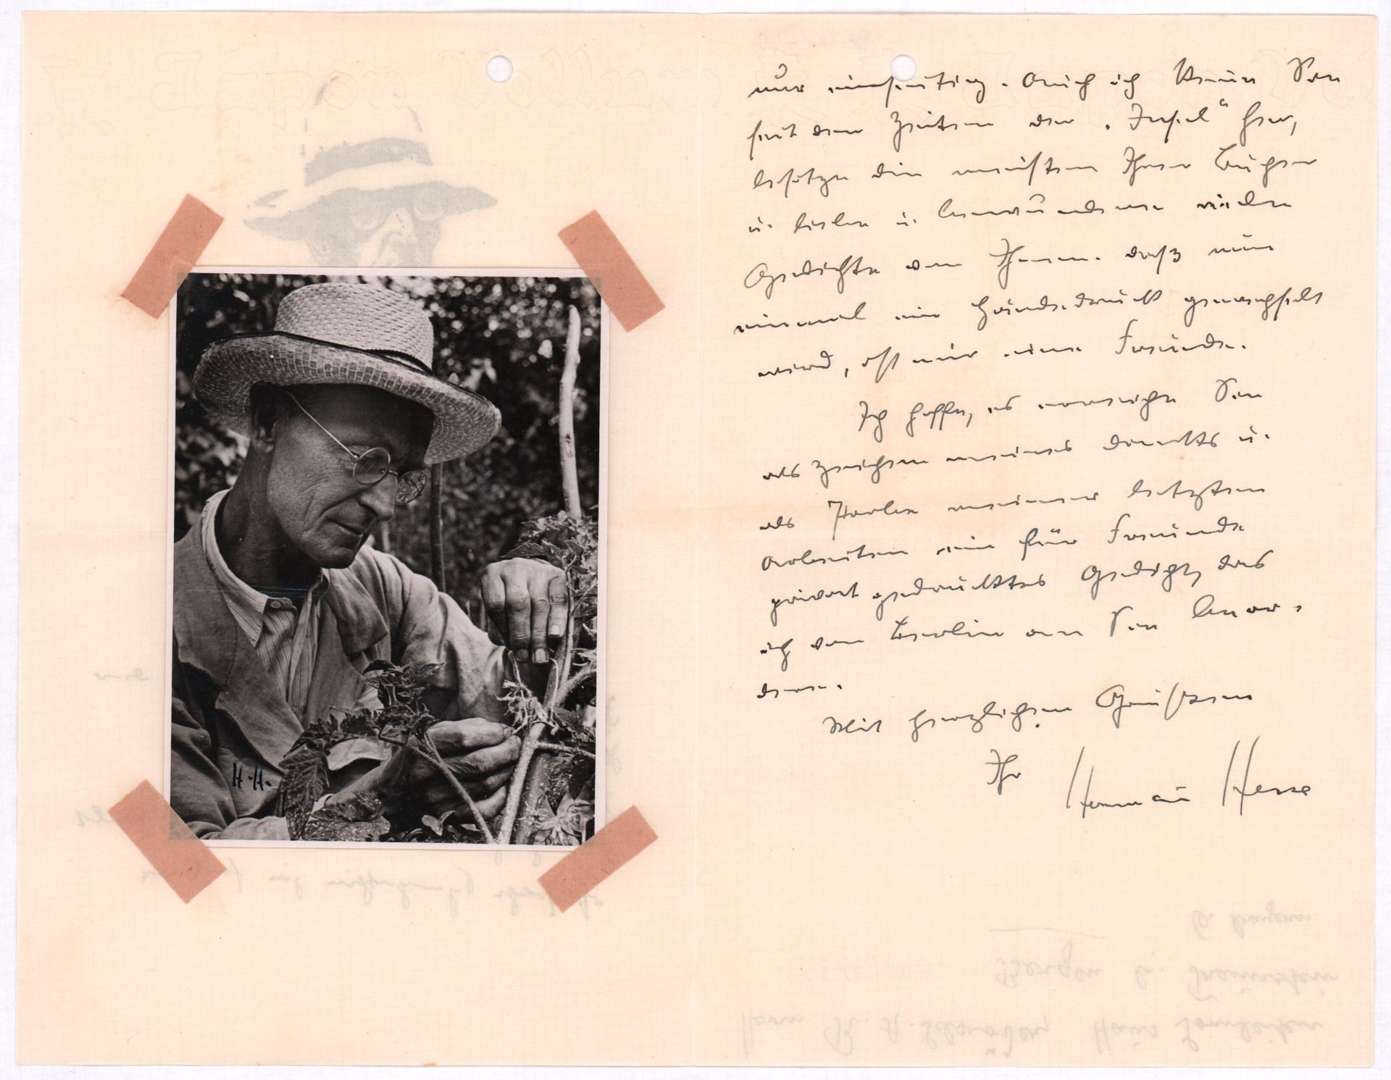 nur einseitig. Auch ich kenne Sie
seit den Zeiten der „Insel“ her,
besitze die meisten Ihrer Bücher
u. liebe u. bewundere viele
Gedichte von Ihnen. Daß nun
einmal ein Händedruck gewechselt
wird, ist mir eine Freude.
Ich hoffe, es erreiche Sie
als Zeichen meines Danks u.
als Probe meiner letzten
Arbeiten ein für Freunde
privat gedrucktes Gedicht, das
ich von Berlin an Sie beor-
dere.
Mit herzlichen Grüssen
Ihr Hermann Hesse
H.H.